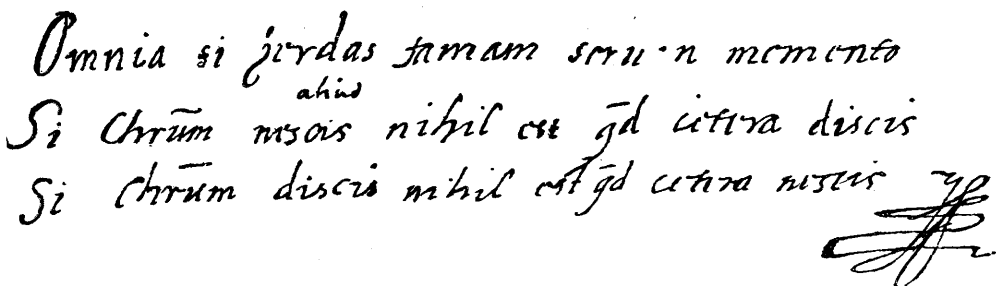 Omnia si perdas famam seruan memento
aliud
Si Chrūm nescis nihil est q̄d cetera discis
Si Chrūm discis nihil est q̄d cetera nescis